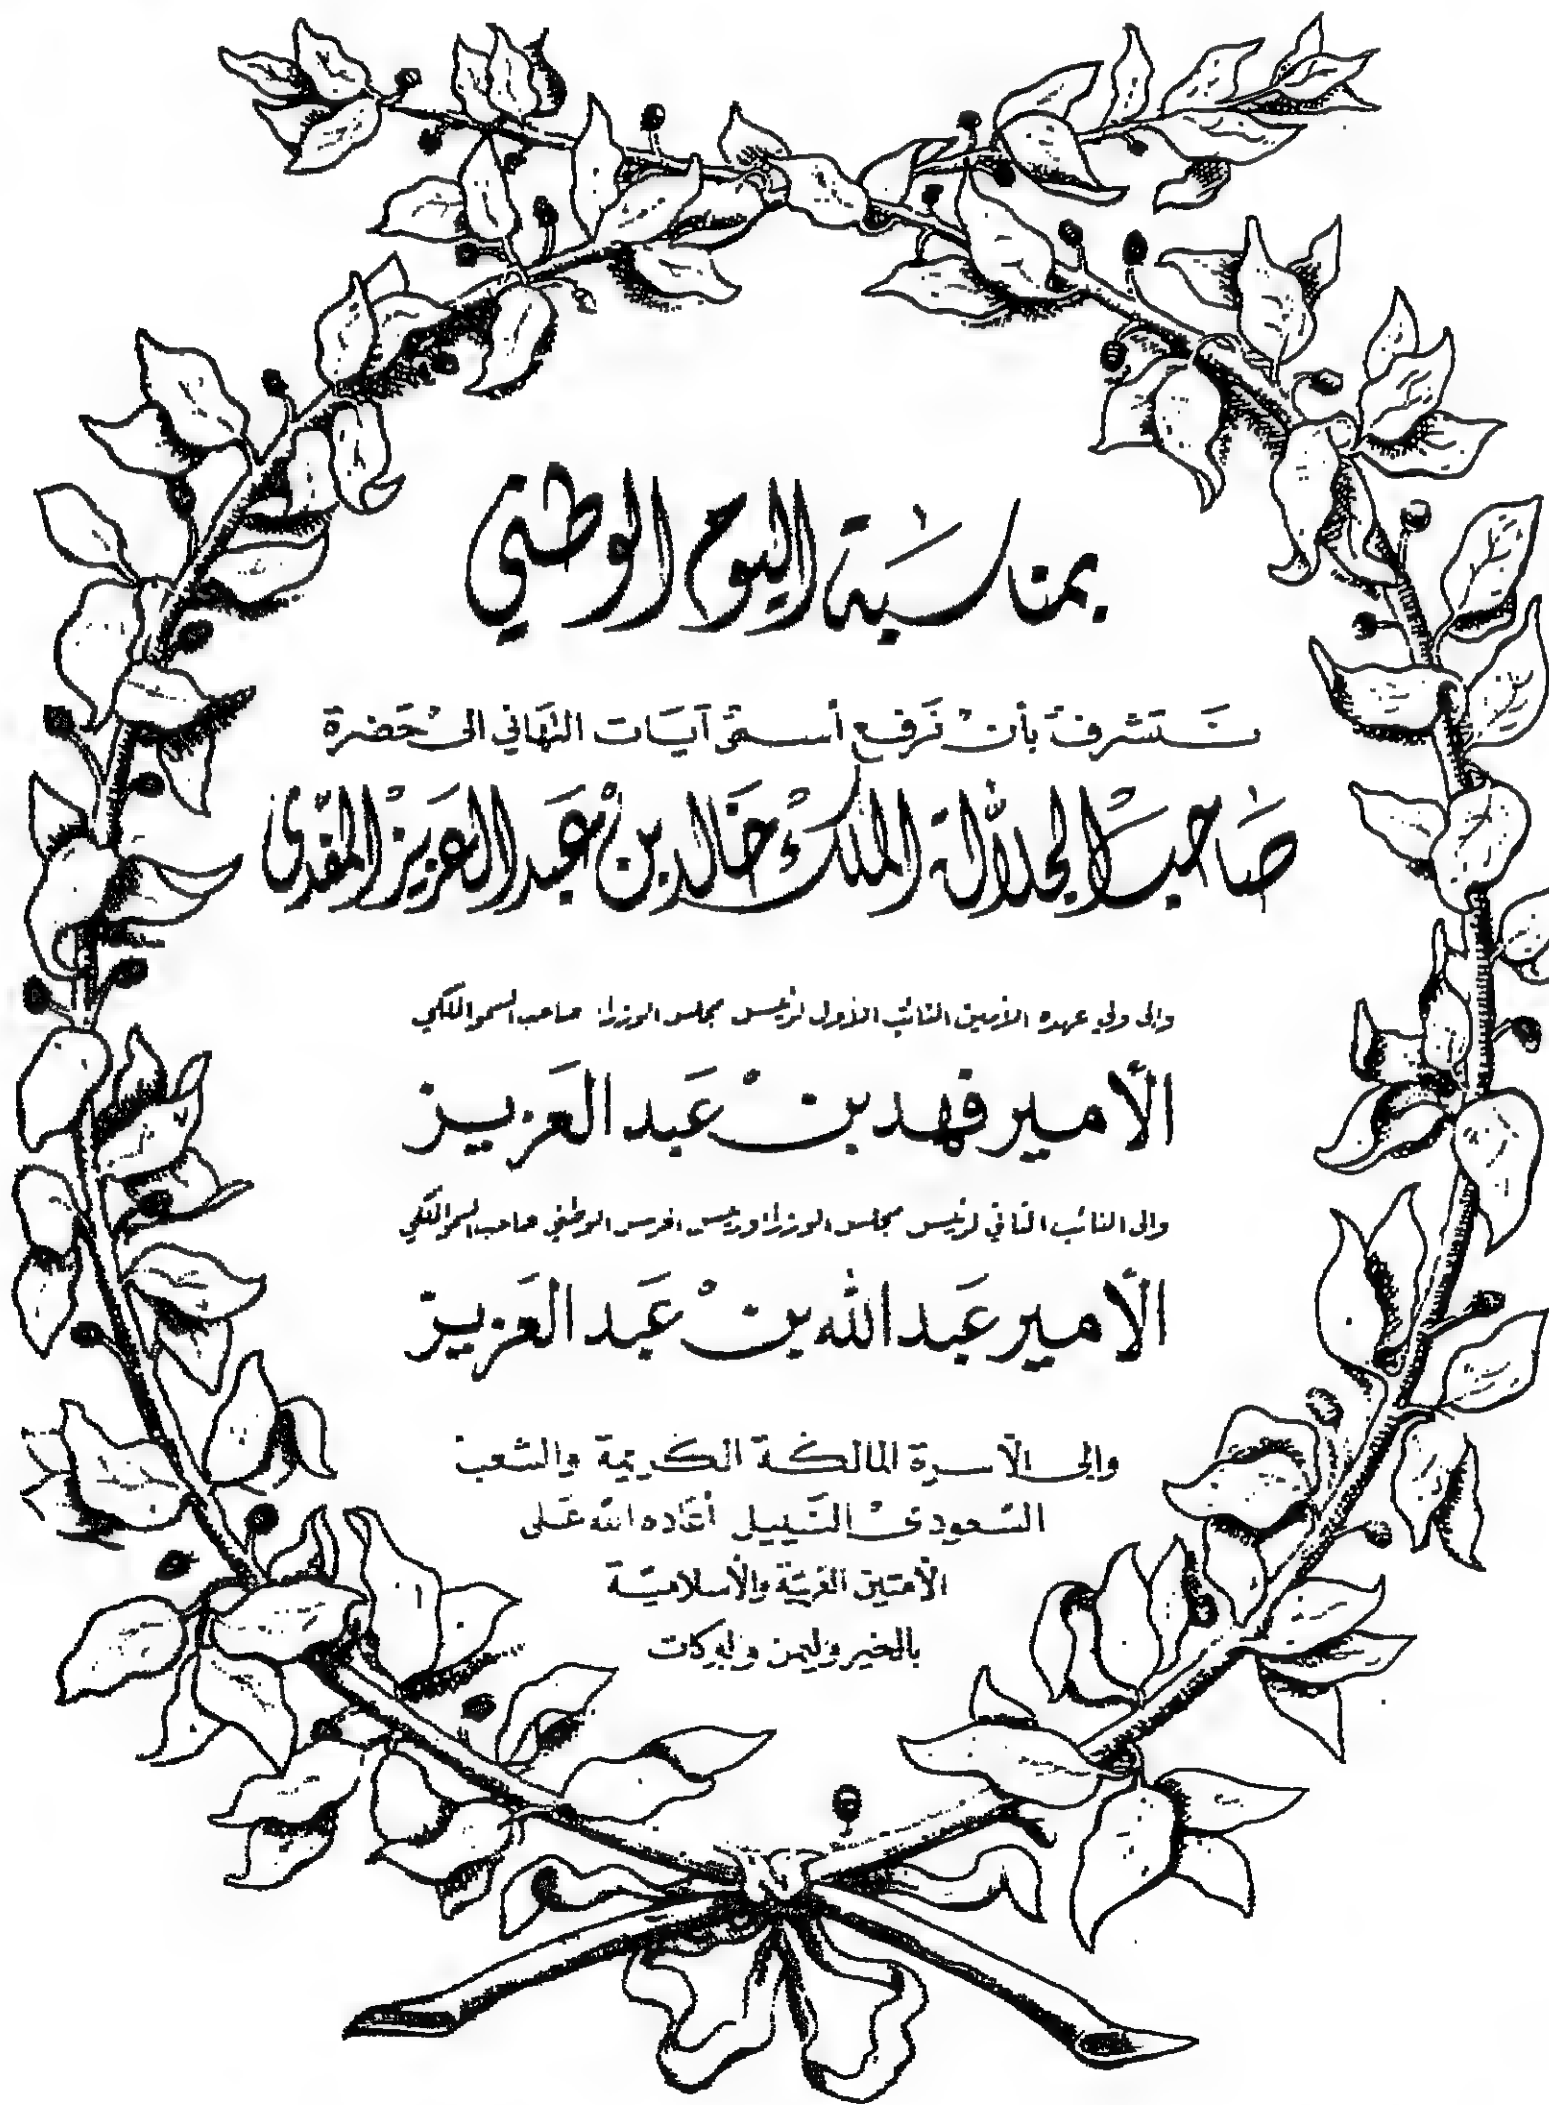 بمناسبة اليوم الوطني
نتشرف بأن نرفع أسمى آيات التهاني الى حضرة
صاحب الجلالة الملك خالد بن عبد العزيز المفدى
والى ولي عهده الأمين النائب الأول لرئيس مجلس الوزراء صاحب السمو الملكي
الأمير فهد بن عبد العزيز
والى النائب الثاني لرئيس مجلس الوزراء ورئيس الحرس الوطني صاحب السمو الملكي
الأمير عبد الله بن عبد العزيز
والى الأسرة المالكة الكريمة والشعب
السعودى النبيل أعاده الله على
الأمتين العربية والأسلامية
بالخير واليمن والبركات